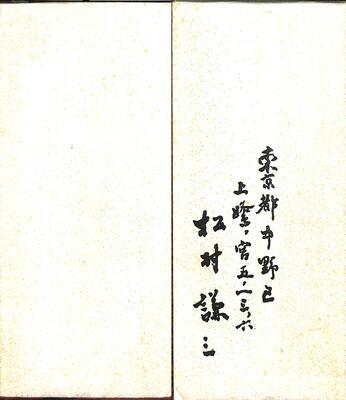 東京都中野区
上鷺ノ宮五ノ一三ノ六
松村謙三